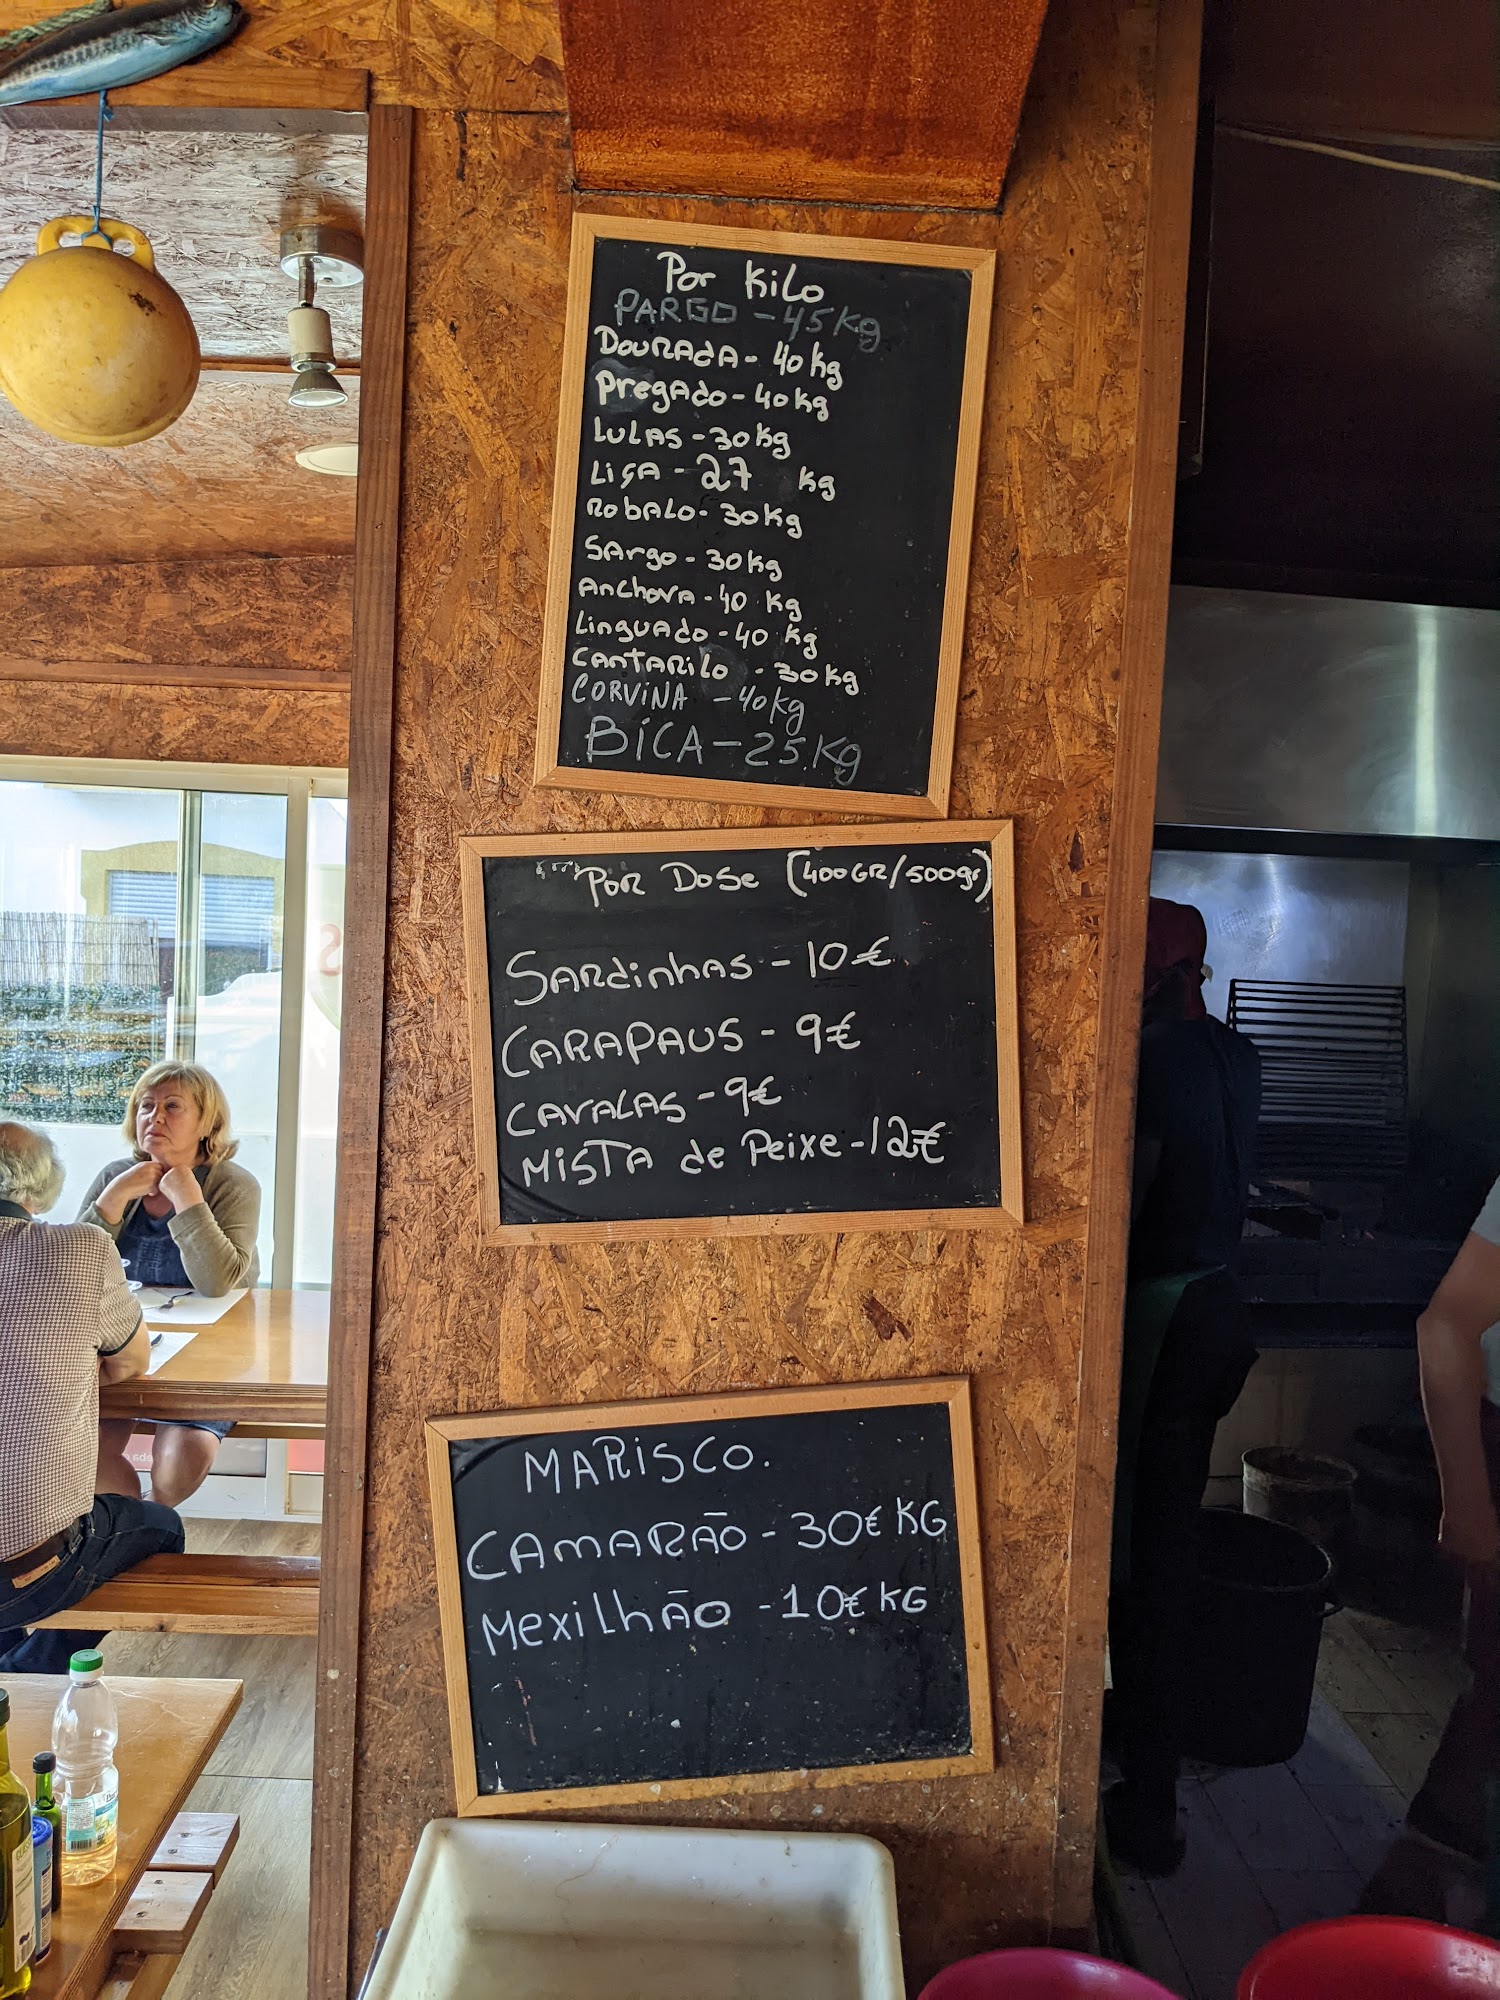 Por Kilo
PARGO - 45Kg
DOURAdA - 40 kg
PregAdo - 40 kg
LULAS - 30 kg
LiçA - 27 kg
RobALo - 30 Kg
SArgo - 30 kg
AnchovA - 40 kg
LinguAdo - 40 kg
CANTARiLo - 30 kg
CORViNA - 40kg
BiCA - 25 Kg
POR DoSe (400GR/500gr)
SARdinhAS - 10€
CARAPAUS - 9€
CAVALAS - 9€
MiSTA de Peixe - 12€
MARiSCO.
CAMARÃO - 30€ KG
MexiLhÃo - 10€ KG